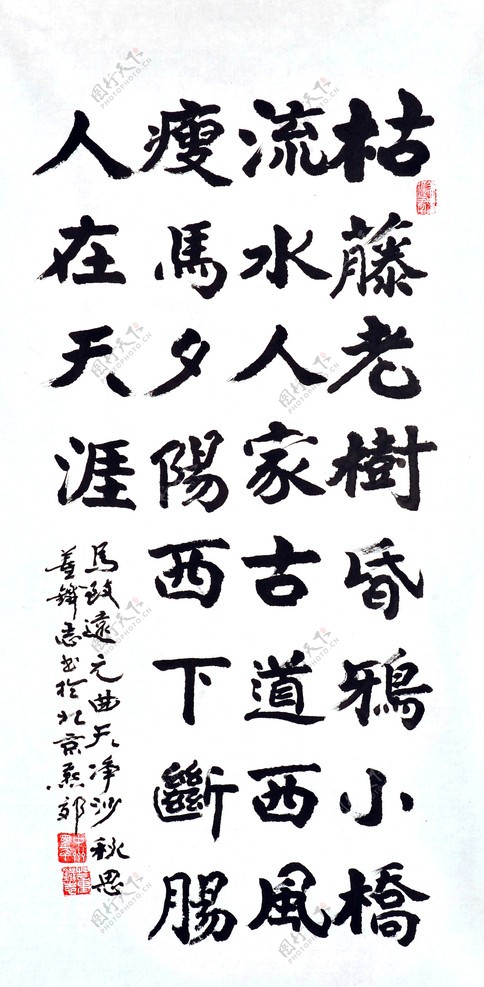 枯藤老樹昏鴉小橋
流水人家古道西風
瘦馬夕陽西下斷腸
人在天涯
馬致遠元曲天净沙秋思
志书於北京燕郊
图行天下
PHOTOPHOTO.CN